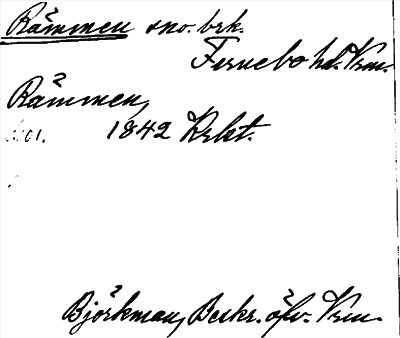 Råmmen sno. brk.
Fernebo hd. Vrm.
Råmmen,
1842 Krkt.
Björkman, Beskr. öfv. Vrm.